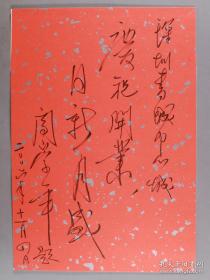 深圳書城中心城
慶祝開業，
日新月盛
高 年題
二〇〇六年十一月四日